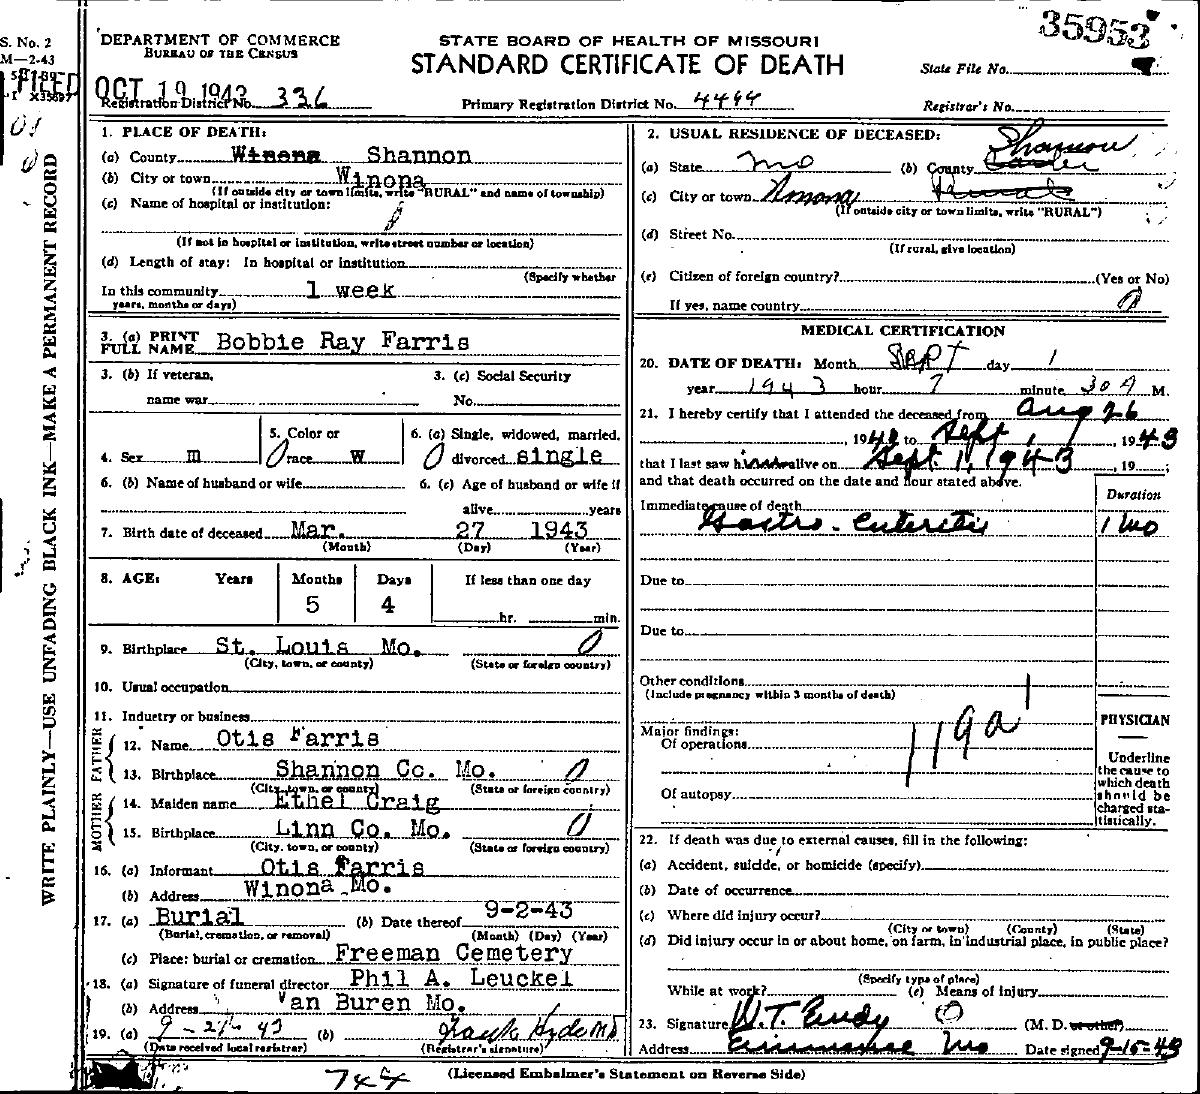 35953
S. No. 2
M—2-43
DEPARTMENT OF COMMERCE
BUREAU OF THE CENSUS
STATE BOARD OF HEALTH OF MISSOURI
STANDARD CERTIFICATE OF DEATH
State File No.
FILED OCT 19 1943
Registration District No. 336
Primary Registration District No. 4494
Registrar's No.
WRITE PLAINLY—USE UNFADING BLACK INK—MAKE A PERMANENT RECORD
1. PLACE OF DEATH:
(a) County Winona Shannon
(b) City or town Winona
(If outside city or town limits, write "RURAL" and name of township)
(c) Name of hospital or institution:
(If not in hospital or institution, write street number or location)
(d) Length of stay: In hospital or institution
(Specify whether
In this community 1 week
years, months or days)
3. (a) PRINT FULL NAME Bobbie Ray Farris
3. (b) If veteran, name war
3. (c) Social Security No.
4. Sex m
5. Color or race W
6. (a) Single, widowed, married, divorced single
6. (b) Name of husband or wife
6. (c) Age of husband or wife if alive years
7. Birth date of deceased Mar. 27 1943
(Month) (Day) (Year)
8. AGE: Years Months Days If less than one day
5 4 hr. min.
9. Birthplace St. Louis Mo. 0
(City, town, or county) (State or foreign country)
10. Usual occupation
11. Industry or business
FATHER
12. Name Otis Farris
13. Birthplace Shannon Co. Mo. 0
(City, town, or county) (State or foreign country)
MOTHER
14. Maiden name Ethel Craig
15. Birthplace Linn Co. Mo. 0
(City, town, or county) (State or foreign country)
16. (a) Informant Otis Farris
(b) Address Winona Mo.
17. (a) Burial (b) Date thereof 9-2-43
(Burial, cremation, or removal) (Month) (Day) (Year)
(c) Place: burial or cremation Freeman Cemetery
18. (a) Signature of funeral director Phil A. Leuckel
(b) Address Van Buren Mo.
19. (a) 9-21-43 (b) Frank Hyde MD
(Date received local registrar) (Registrar's signature)
2. USUAL RESIDENCE OF DECEASED:
(a) State Mo (b) County Shannon
(c) City or town Winona
(If outside city or town limits, write "RURAL")
(d) Street No.
(If rural, give location)
(e) Citizen of foreign country? (Yes or No)
If yes, name country 0
MEDICAL CERTIFICATION
20. DATE OF DEATH: Month Sept day 1
year 1943 hour 7 minute 30 A M.
21. I hereby certify that I attended the deceased from Aug 26
, 1943 to Sept 1, 1943
that I last saw him alive on Sept. 1, 1943, 19 ;
and that death occurred on the date and hour stated above.
Duration
Immediate cause of death
Gastro-Enteritis 1 mo
Due to
Due to
Other conditions
(Include pregnancy within 3 months of death)
Major findings:
Of operations
119a
Of autopsy
PHYSICIAN
Underline the cause to which death should be charged statistically.
22. If death was due to external causes, fill in the following:
(a) Accident, suicide, or homicide (specify)
(b) Date of occurrence
(c) Where did injury occur?
(City or town) (County) (State)
(d) Did injury occur in or about home, on farm, in industrial place, in public place?
(Specify type of place)
While at work? (e) Means of injury
23. Signature W. T. Eudy (M. D. or other)
Address Eminence Mo Date signed 9-15-43
(Licensed Embalmer's Statement on Reverse Side)